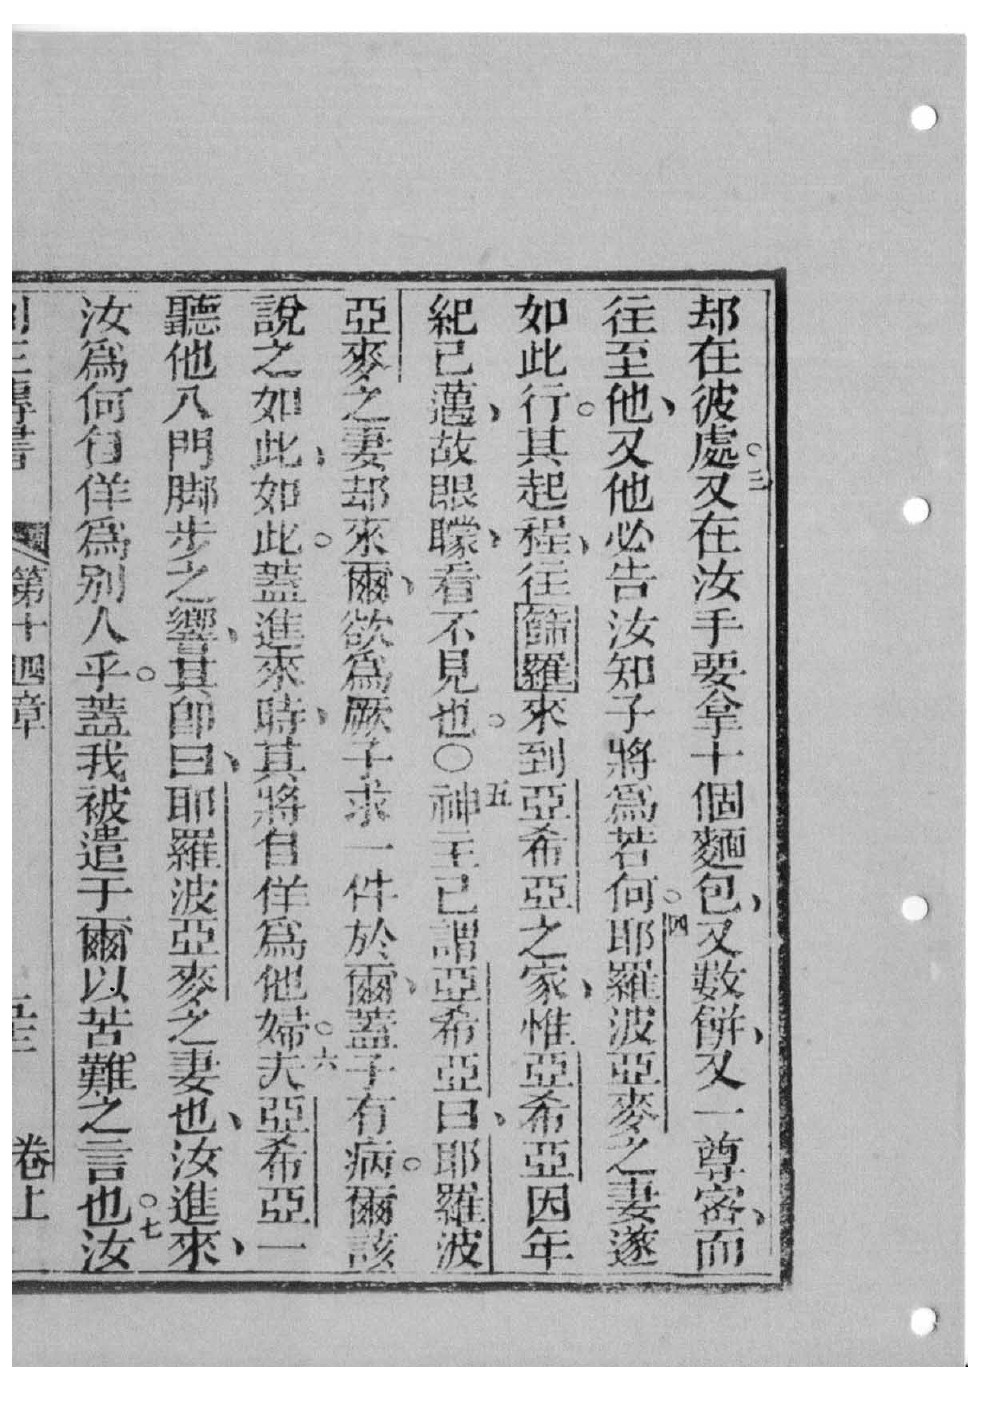 却在彼處。三又在汝手要拿十個麵包、又數餅、又一尊客、而
往至他、又他必告汝知子將爲若何。四耶羅波亞麥之妻遂
如此行。其起程、往篩羅來到亞希亞之家、惟亞希亞因年
紀已邁、故眼矇、看不見也。○五神主已謂亞希亞曰、耶羅波
亞麥之妻却來爾、欲爲厥子求一件於爾、蓋子有病。爾該
說之如此、如此。蓋進來時、其將自佯爲他婦。六夫亞希亞一
聽他入門脚步之響、其卽曰、耶羅波亞麥之妻也、汝進來、
汝爲何自佯爲别人乎。蓋我被遣于爾以苦難之言也。七汝
列王傳書 第十四章 卷上